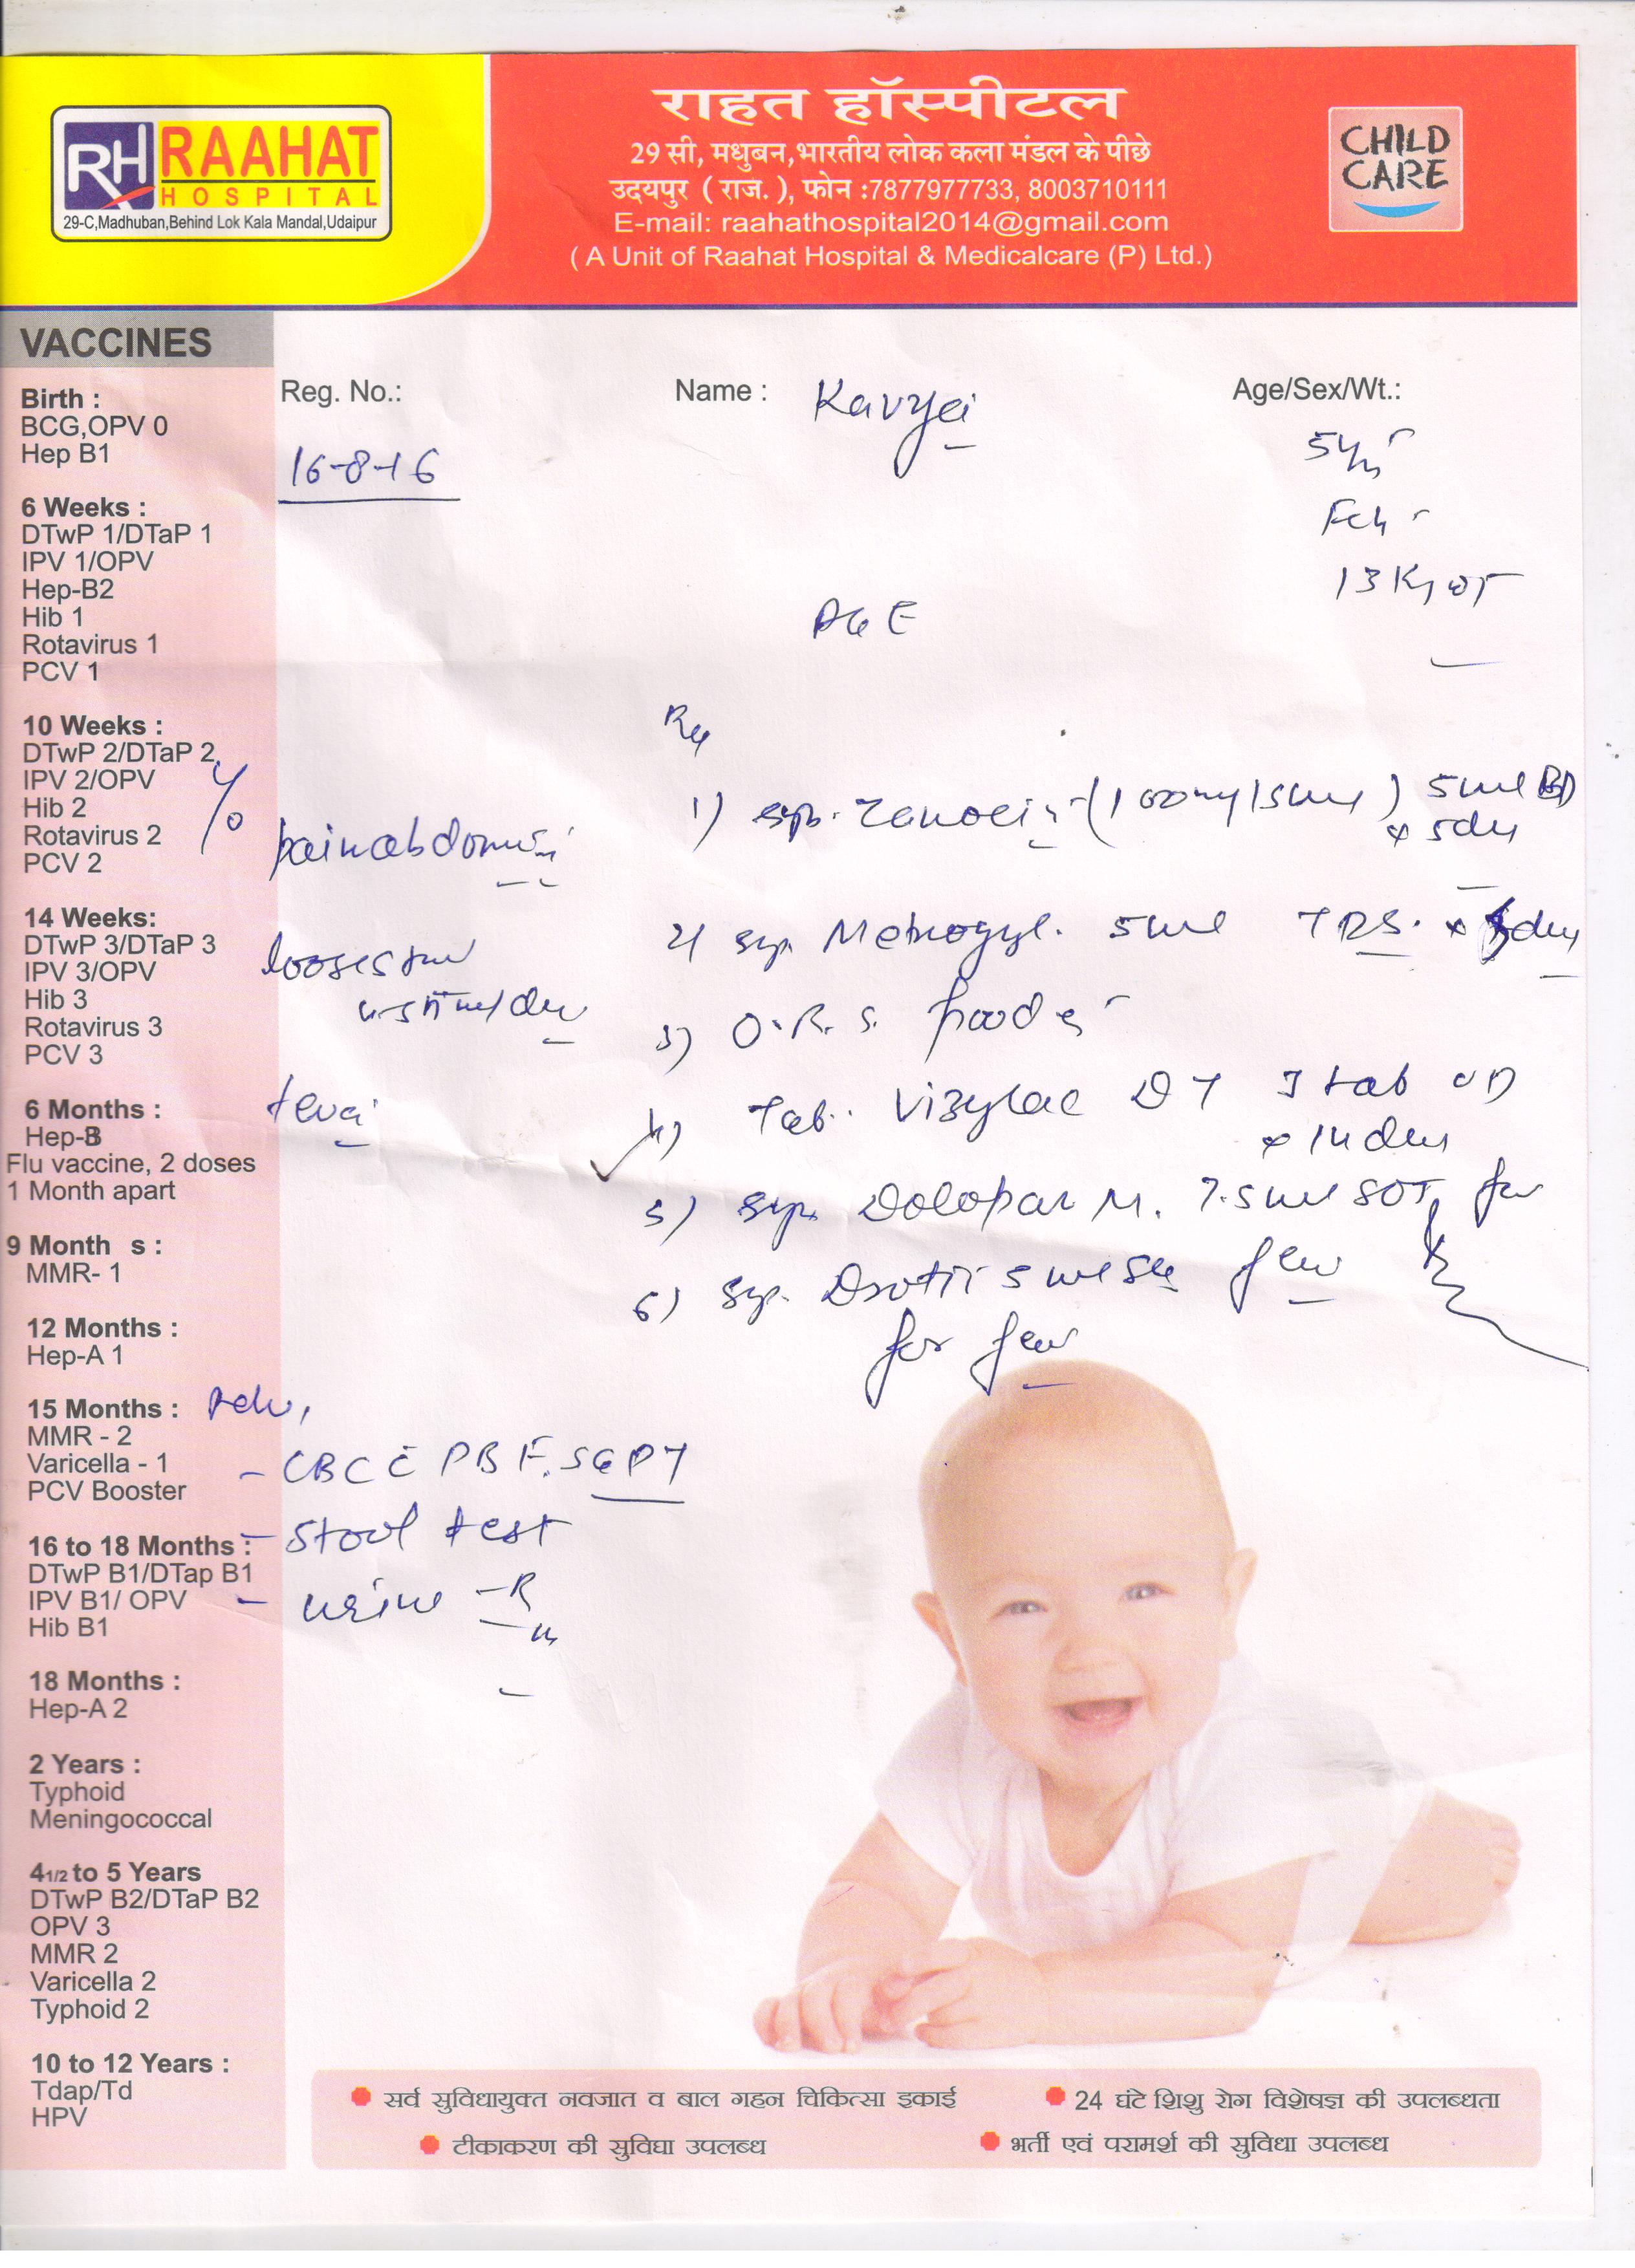 RH RAAHAT
HOSPITAL
29-C,Madhuban,Behind Lok Kala Mandal,Udaipur
राहत हॉस्पीटल
29 सी, मधुबन,भारतीय लोक कला मंडल के पीछे
उदयपुर ( राज. ), फोन :7877977733, 8003710111
E-mail: raahathospital2014@gmail.com
( A Unit of Raahat Hospital & Medicalcare (P) Ltd.)
CHILD
CARE
VACCINES
Birth :
BCG,OPV 0
Hep B1
6 Weeks :
DTwP 1/DTaP 1
IPV 1/OPV
Hep-B2
Hib 1
Rotavirus 1
PCV 1
10 Weeks :
DTwP 2/DTaP 2
IPV 2/OPV
Hib 2
Rotavirus 2
PCV 2
14 Weeks:
DTwP 3/DTaP 3
IPV 3/OPV
Hib 3
Rotavirus 3
PCV 3
6 Months :
Hep-B3
Flu vaccine, 2 doses
1 Month apart
9 Month s :
MMR- 1
12 Months :
Hep-A 1
15 Months :
MMR - 2
Varicella - 1
PCV Booster
16 to 18 Months :
DTwP B1/DTap B1
IPV B1/ OPV
Hib B1
18 Months :
Hep-A 2
2 Years :
Typhoid
Meningococcal
41/2 to 5 Years
DTwP B2/DTaP B2
OPV 3
MMR 2
Varicella 2
Typhoid 2
10 to 12 Years :
Tdap/Td
HPV
Reg. No.:
Name : Kavya
Age/Sex/Wt.:
16-8-16
5yrs
Fch
13 Kg wt
AGE
Rx
c/o pain abdomen
loose stool
4-5 time/day
fever
1) syp. Zanocin (100mg/5ml) 5ml BD
x 5day
2) syp. Metrogyl. 5ml TDS. x 5day
3) O.R.S. powder
4) Tab. Vizylac DT 1 tab OD
x 14 days
5) syp. Dolopar M. 7.5ml SOS for
fever
6) syp. 5ml
for fever
Adv,
- CBC c PBF. SGPT
- stool test
- urine - R
m
सर्व सुविधायुक्त नवजात व बाल गहन चिकित्सा इकाई
24 घंटे शिशु रोग विशेषज्ञ की उपलब्धता
टीकाकरण की सुविघा उपलब्ध
भर्ती एवं परामर्श की सुविधा उपलब्ध